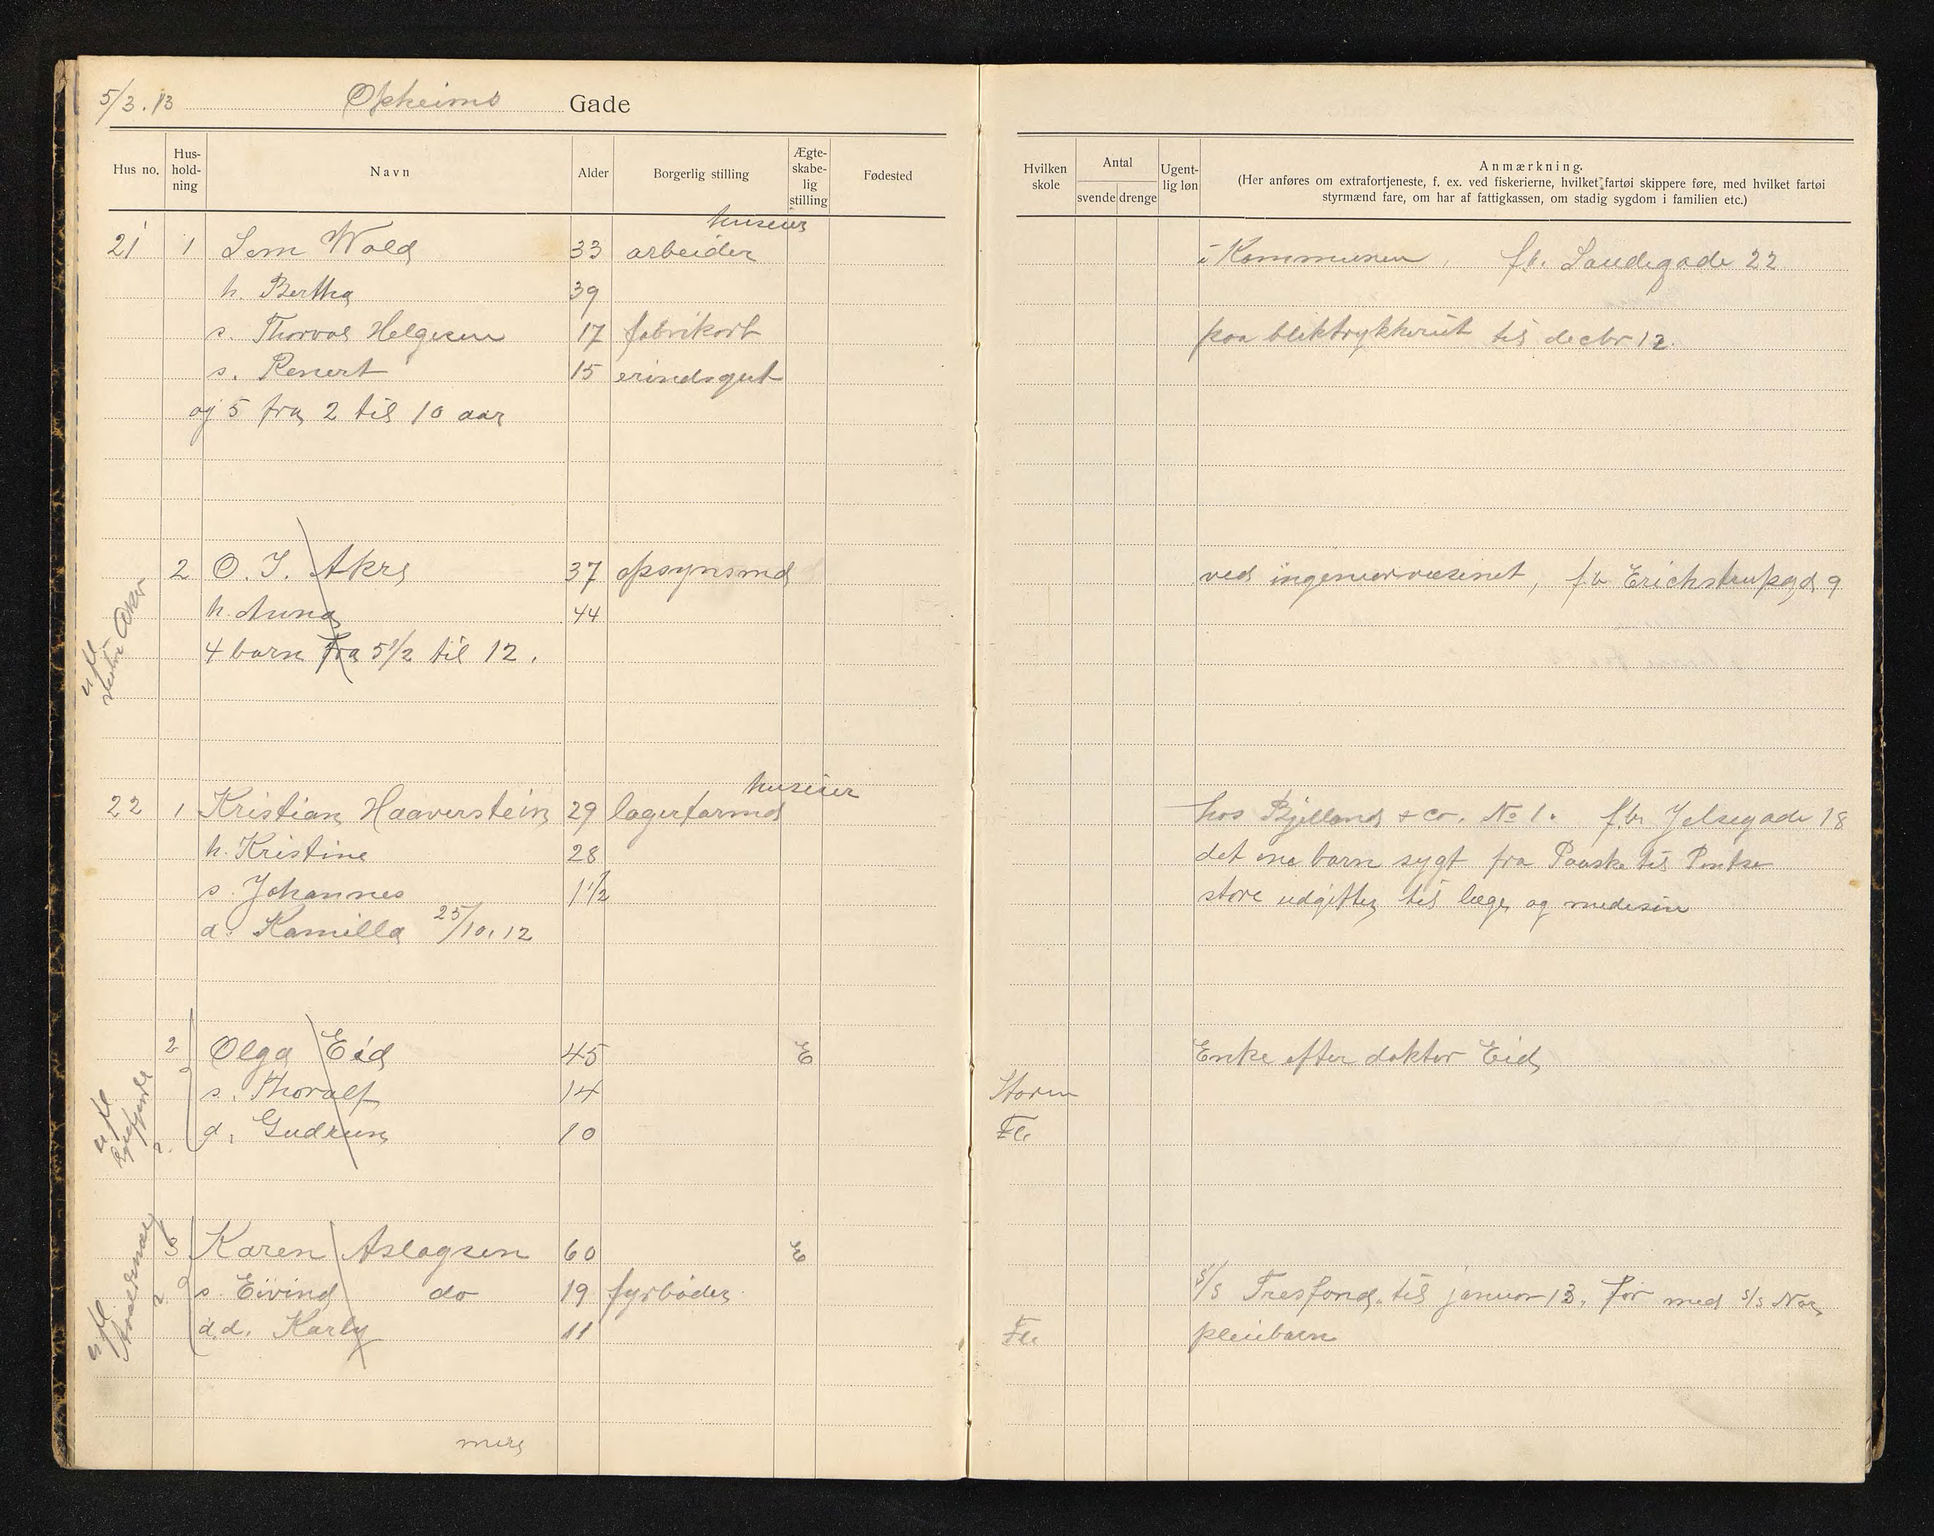 5/3.13 Opheims Gade
Hus no. Hus-holdning Navn Alder Borgerlig stilling Ægte-skabe-lig stilling Fødested
Hvilken skole Antal svende drenge Ugent-lig løn Anmærkning.
(Her anføres om extrafortjeneste, f. ex. ved fiskerierne, hvilket fartøi skippere føre, med hvilket fartøi
styrmænd fare, om har af fattigkassen, om stadig sygdom i familien etc.)
huseier
21 1 Lem Wold 33 arbeider i Kommunen, fb. Sandegade 22
h. Bertha 39
s. Thorval Helgesen 17 fabrikarb paa bliktrykkeriet til decbr 12.
s. Renert 15 erindsgut
og 5 fra 2 til 10 aar
2 O. J. Akre 37 opsynsmd ved ingeniørvæsenet, fb Erichstrupgd 9
h. Anna 44
4 barn fra 5 1/2 til 12.
ufl
huseier
22 1 Kristian Haaverstein 29 lagerformd hos Bjelland & Co. No 1. fbr Jelsegade 18
h. Kristine 28 det ene barn sygt fra Paaske til Pintse
s. Johannes 1 1/2 store udgifter til læge og medesin
d. Kamilla 25/10.12
2 Olga Eid 45 E Enke efter doktor Eid
s. Thoralf 14 Storm
d. Gudrun 10 Fle
ufl
3 Karen Aslagsen 60 E
s. Eivind do 19 fyrbøder S/S Tresfond til januar 13. før med S/S Nor
d.d. Karly 11 Fle pleiebarn
ufl